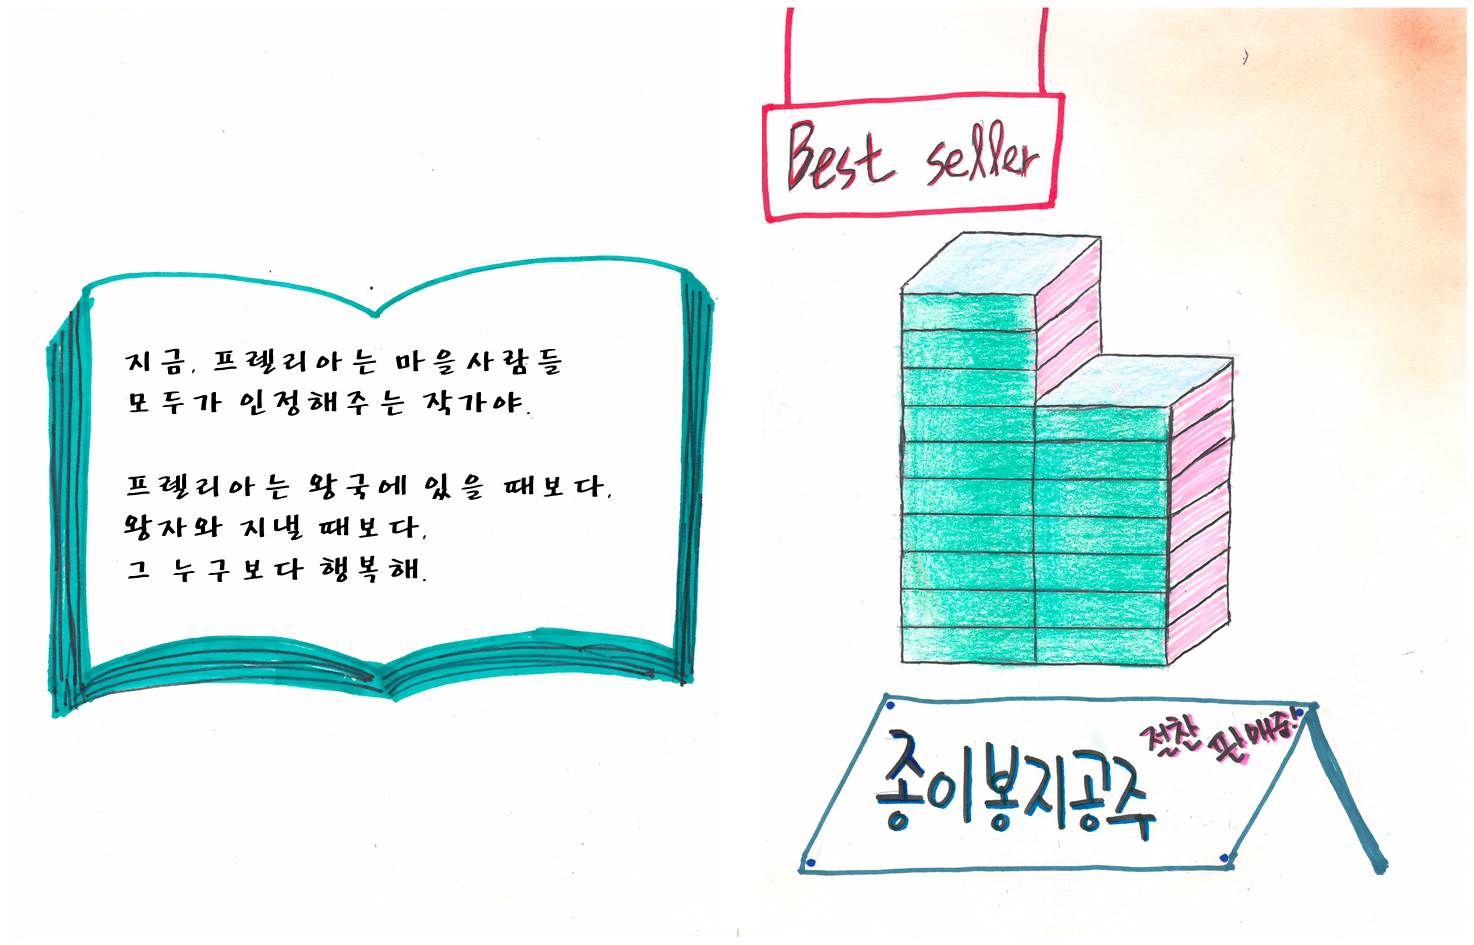 지금, 프렐리아는 마을사람들
모두가 인정해주는 작가야.
프렐리아는 왕국에 있을 때보다,
왕자와 지낼 때보다,
그 누구보다 행복해.
Best seller
절찬 판매중!
종이봉지공주